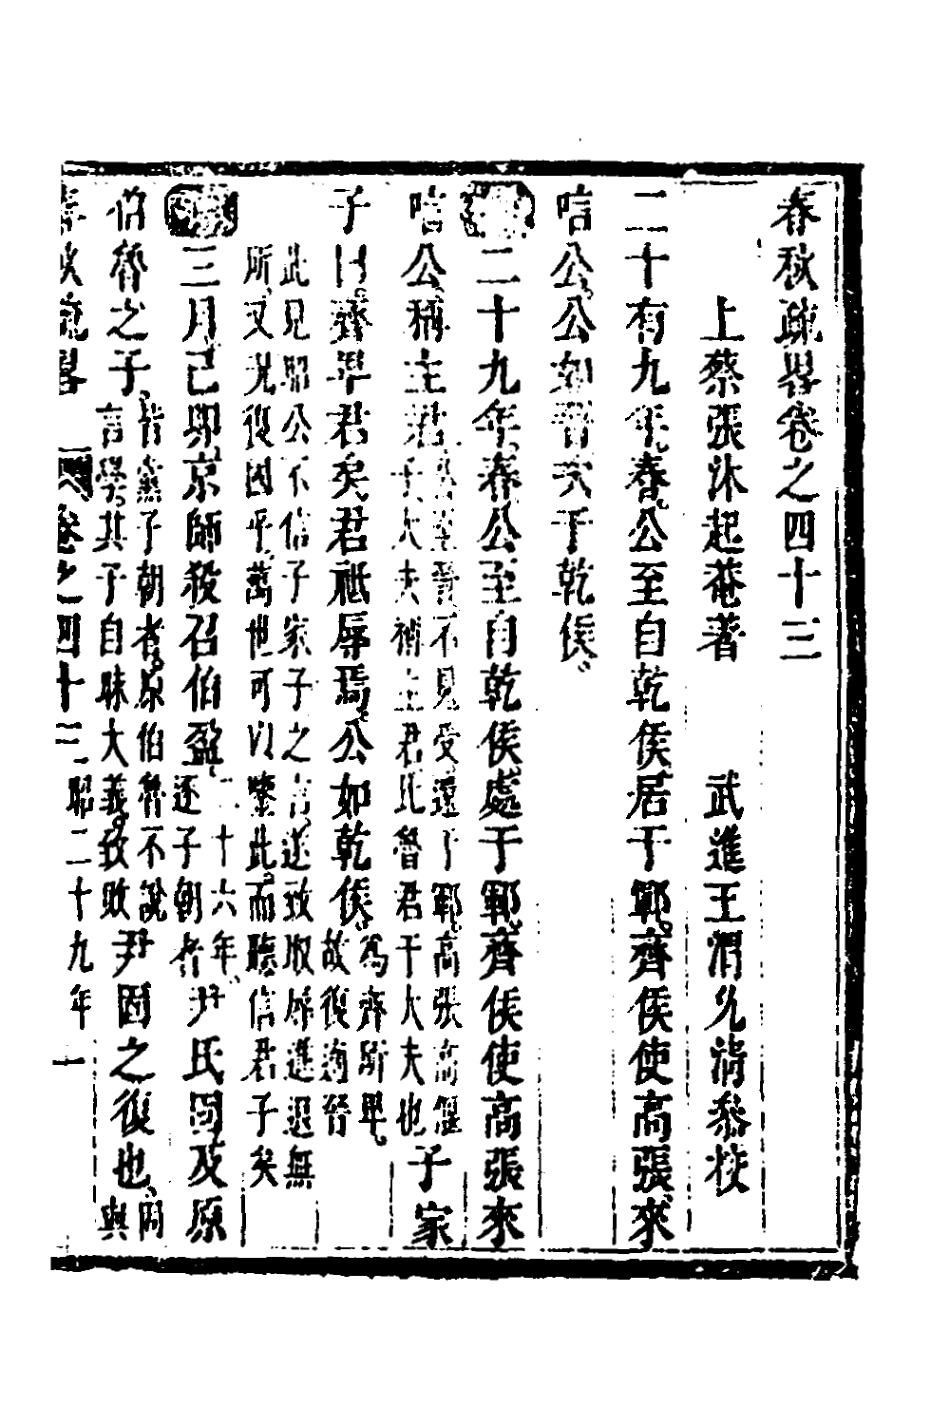 春秋疏畧卷之四十三
上蔡張沐起菴著　武進王渭允清㕘校
二十有九年春公至自乾侯居于鄆齊侯使高張來
唁公公如晉次于乾侯
二十九年春公至自乾侯處于鄆齊侯使高張來
唁公稱主君
不見受還于鄆高張高偃
子大夫稱主君比魯君于大夫也
子家
子曰齊卑君矣君祗辱焉公如乾侯
爲齊所卑
故復適晉
此見昭公不信子家子之言遂致取辱進退無
所又況復國乎萬世可以鑒此而聽信君子矣
三月己卯京師殺召伯盈
二十六年
逐子朝者
尹氏固及原
伯魯之子
皆黨子朝者原伯魯不說
言學其子自昧大義致敗
尹固之復也
與
春秋疏畧　卷之四十三　昭二十九年　一